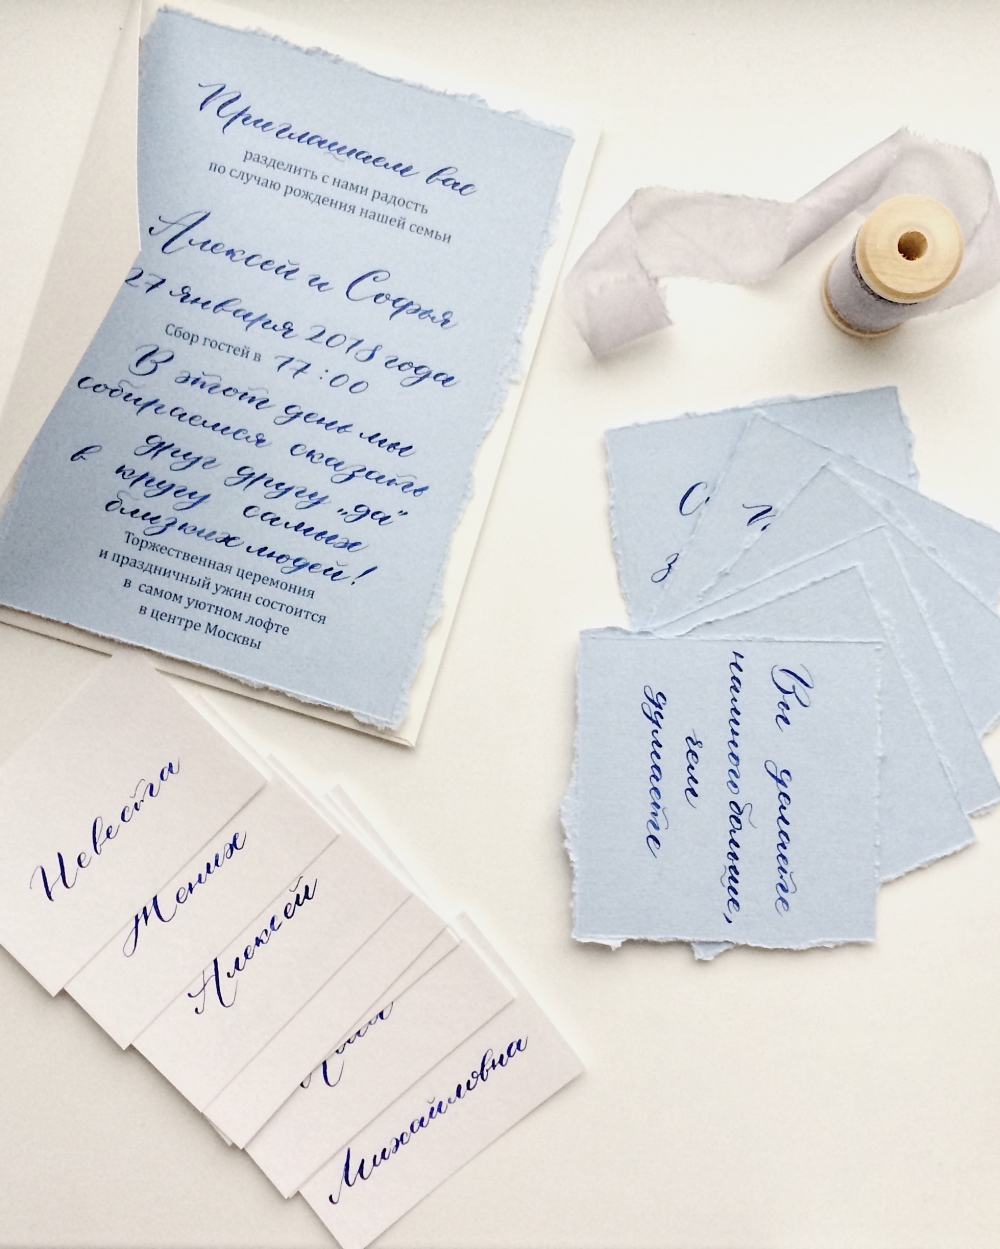 Приглашаем вас
разделить с нами радость
по случаю рождения нашей семьи
Алексей и Софья
27 января 2018 года
Сбор гостей в 17:00
В этот день мы
собираемся сказать
друг другу „да“
в кругу самых
близких людей!
Торжественная церемония
и праздничный ужин состоится
в самом уютном лофте
в центре Москвы
Вы делаете
намного больше,
чем
думаете
Невеста
Жених
Алексей
Михайловна